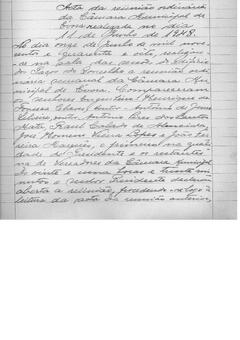 Acta da reunião ordinária
da Câmara Municipal de
realizada no dia
11 de Junho de 1948.
Ao dia onze de Junho de mil nove
centos e quarenta e oito, realizou-
se na sala das do Edifício
do Paços do Concelho a reunião ordi
nária semanal da Câmara Mu
nicipal de Évora. Compareceram
os senhores Engenheiro Henrique da
Fonseca António de
António Pires dos Santos
Raul de Almeida,
José Homem Vieira Lopes e João Fer
reira Marques, o primeiro na qua
lidade de Presidente e os restantes
na de Vereadores da Câmara Municipal.
Às vinte e uma horas e trinta mi
nutos o senhor Presidente declarou
aberta a reunião, procedendo-se logo à
leitura da acta da reunião anterior,